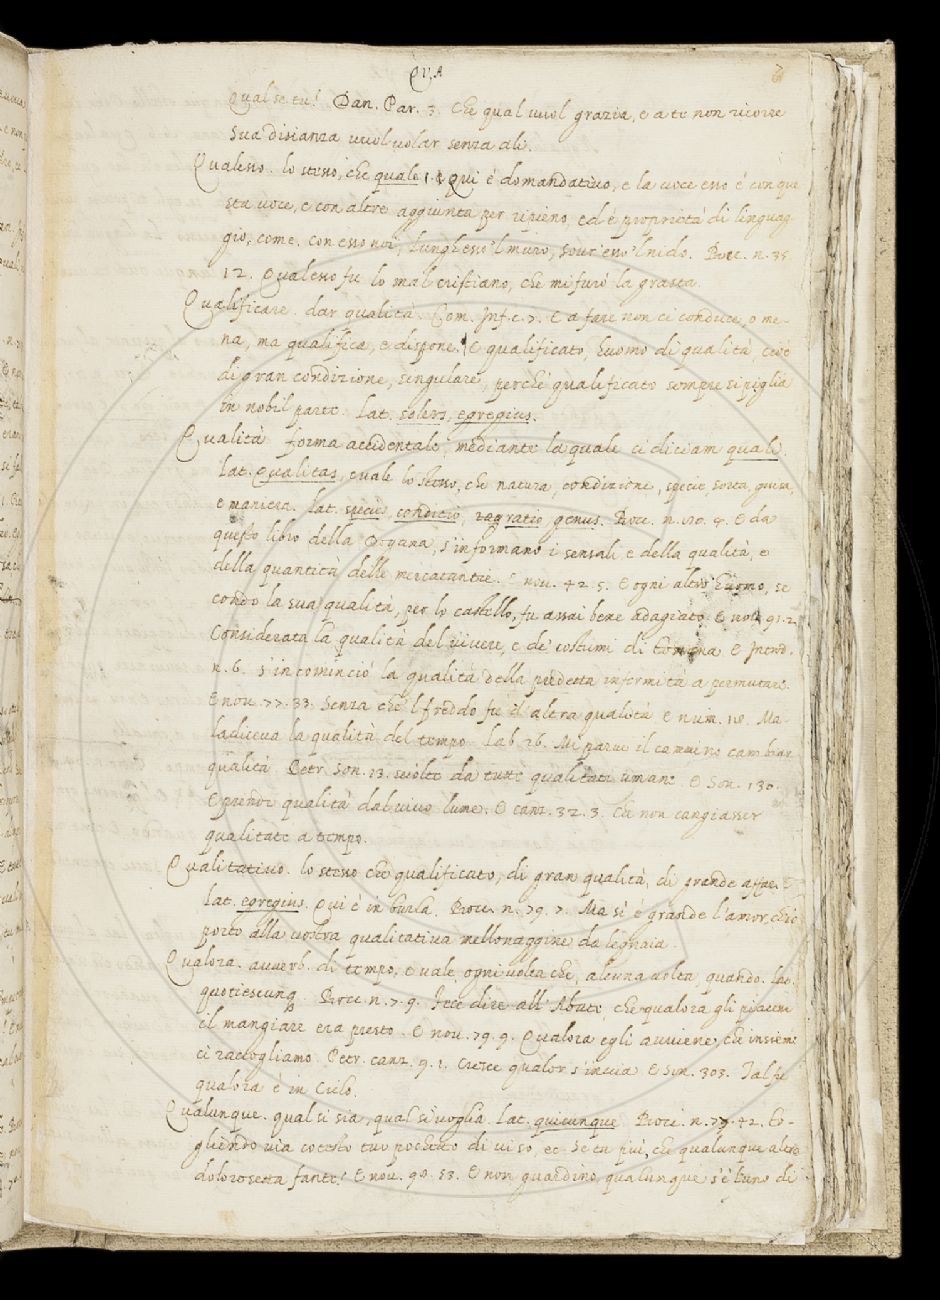 QUA
Qual se tu? Dan. Par. 3. Che qual vuol grazia, e a te non ricorre
Sua disianza vuol volar senza ali.
Qualesso. lo stesso, che quale. Qui è domandativo, e la voce esso è con que
sta voce, e con altre aggiunta per ripieno, ed è proprietà di linguag-
gio, come. con esso noi, lunghesso 'l muro, sour' esso 'l nido. Bocc. n. 35
12. Qualesso fu lo mal cristiano, che mi furò la grasta.
Qualificare. dar qualità. Com. Inf. c. 7. E a fare non ci conduce, o me-
na, ma qualifica, e dispone. E qualificato, huomo di qualità cioè
di gran condizione, singulare, perchè qualificato sempre si piglia
in nobil parte. lat. solers, egregius.
Qualità forma accidentale, mediante la quale ci diciam quali.
lat. Qualitas, e vale lo stesso, che natura, condizione, specie, sorta, guisa,
e maniera. lat. species, conditio, ratio, genus. Bocc. n. 80. 4. E da
questo libro della Dogana, s'informano i sensali e della qualità, e
della quantità delle mercatantie. E nou. 42. 5. E ogni altro huomo, se
condo la sua qualità, per lo castello, fu assai bene adagiato. E nou. 91. 2
Considerata la qualità del vivere, e de' costumi di E Introd.
n. 6. s'incominciò la qualità della predetta infermità a permutare.
E nou. 77. 33. Senza che 'l freddo fu d'altra qualità E num. 18. Ma
ladiceva la qualità del tempo. Lab. 26. Mi parve il cammino cambiar
qualità Petr. Son. 13. sciolto da tutte qualitati umane. E Son. 130.
E prende qualità dal vivo lume. E canz. 32. 3. Che non cangiasser
qualitate a tempo.
Qualitativo. lo stesso che qualificato, di gran qualità, di grande affare
lat. egregius. Qui è in burla. Bocc. n. 79. 7. Ma sì è grande l'amor, che io
porto alla vostra qualitativa mellonaggine da legnaia.
Qualora. avverb. di tempo, e vale, ogni volta che, alcuna volta, quando. lat.
quotiescunq. Bocc. n. 7. 9. Fece dire all'Abate, che qualora gli piacesse
il mangiare era presto. E nou. 79. 9. Qualora egli avviene, che insieme
ci raccogliamo. Petr. canz. 9. 1. Cresce qualor s'invia E Son. 303. Tal fu
qualora è in Cielo.
Qualunque. qual si sia, qual si voglia lat. quicunque Bocc. n. 77. 42. To-
gliendo via cotesto tuo pochetto di viso, ec. se tu più, che qualunque altra
dolorosetta fante! E nou. 98. 53. E non guardino, qualunque s'è l'uno di